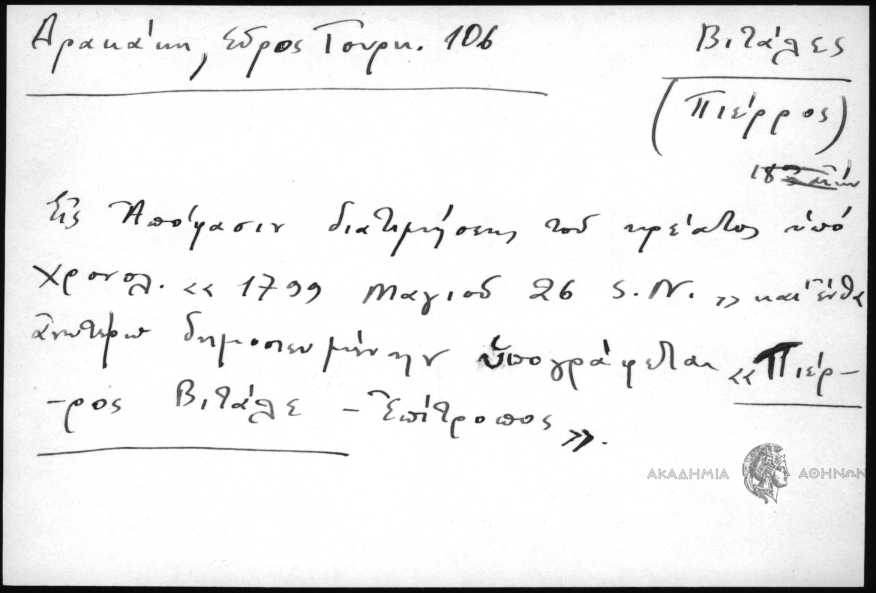 Δρακάκη, Σύρος Τουρκ. 106
Βιτάλες
(Πιέρρος)
Εἰς Ἀπόφασιν διατιμήσεως τοῦ κρέατος ὑπό
χρονολ. «1799 Μαγιοῦ 26 S.N.» καί ἔνθα
ἀνωτέρω δημοσιευμένην ὑπογράφεται «Πιέρ-
-ρος Βιτάλε - Ἐπίτροπος».
ΑΚΑΔΗΜΙΑ ΑΘΗΝΩΝ